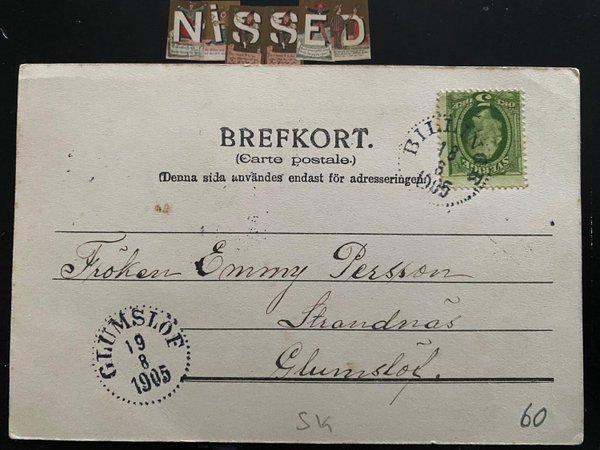 NiSSED
BREFKORT.
(Carte postale.)
(Denna sida användes endast för adresseringen.)
18
8
1905
Fröken Emmy Persson
Strandnäs
Glumslöf.
GLUMSLÖF
19
8
1905
SK
60